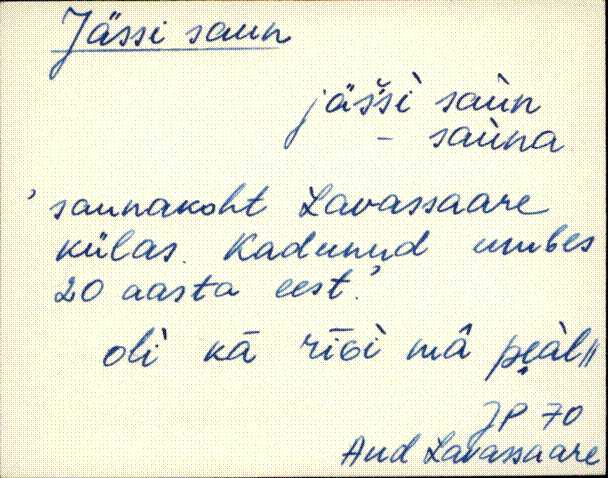 Jässi saun
jäšši̮ saùn
- saùna
' saunakoht Lavassaare
külas. Kadunud umbes
20 aasta eest.'
olì kā rīɢi mâ peàl //
JP 70
Aud Lavassaare